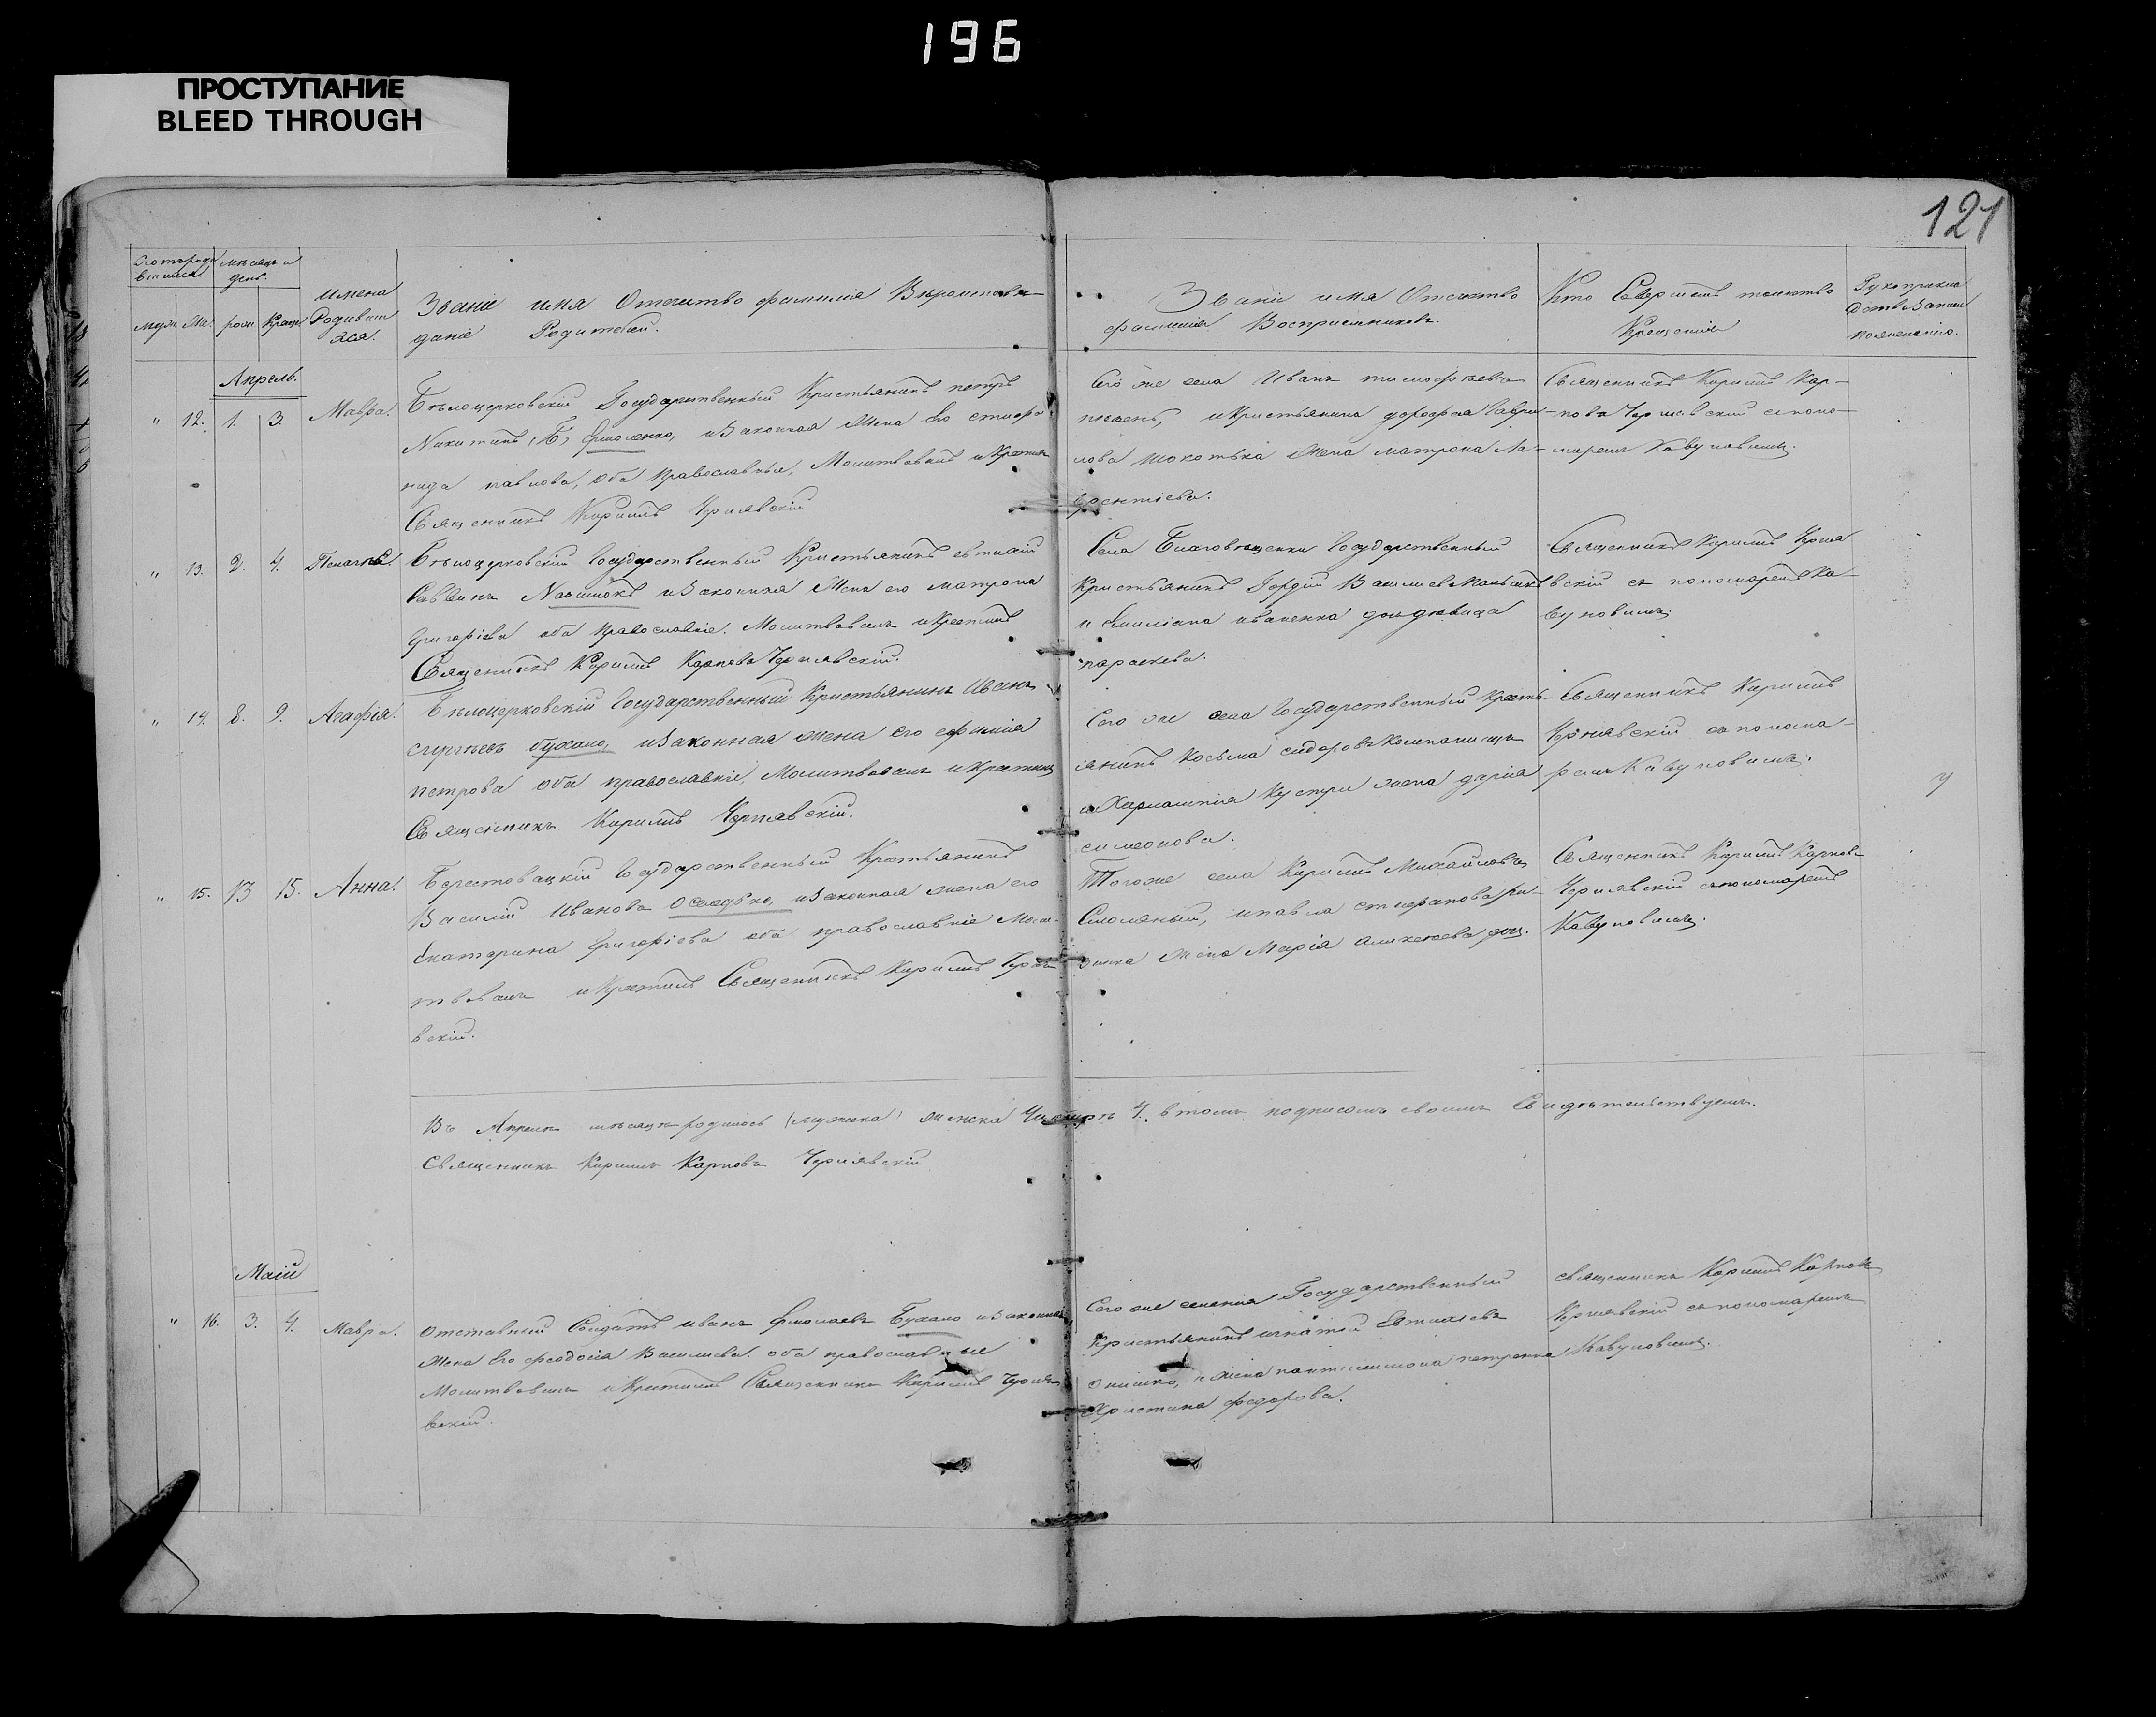 196
ПРОСТУПАНИЕ
BLEED THROUGH
121
мѣсяцъ и
день.
Имена
Родивши
хся.
муж. же. рож. Крещ.
Званіе имя Отечитво фамилія Вѣроисповѣ-
даніе Родителей.
Званіе имя Отечество
фамилія Воспріемниковъ.
Кто Совершалъ таинство
Крещенія
Рукоприкла
дство Записи
по желанію.
Апрель.
" 12. 1. 3. Мавра.
Бѣлоцерковскій Государственный Крестьянинъ петръ
Никитинъ Ярмоленко, и Законная Жена Его стефа
нида павлова, Оба Православныя, Молитвовалъ и Крестилъ
Священникъ Кирилъ Чернявскій
Сего же села Иванъ тимофѣевъ
и Крестьянина дорофея Гаври-
лова жена матрона Ла-
врентіева.
Священникъ Кирилъ Кар-
повъ Чернявскій с поно-
марем Кавуновимъ.
" 13. 2. 4. Пелагія.
Бѣлоцерковскій Государственный Крестьянинъ евтихій
Саввинъ и Законная Жена его матрона
Григоріева оба православніе. Молитвовалъ и Крестилъ
Священникъ Кирилъ Карповъ Чернявскій.
Села Благовѣщенки Государственный
Крестьянинъ Гордій Василіев
и Емиліана иваненка дочь дѣвица
параскева.
Священникъ Кирилъ Черня
вскій съ пономаремъ Ка-
вуновимъ.
" 14. 8. 9. Агафія.
Бѣлоцерковскій Государственный Крестьянинъ Иванъ
сергѣевъ бухало, и Законная жена его ефимія
петрова оба православніе, Молитвовалъ и Крестилъ
Священникъ Кирилъ Чернявскій.
Сего же села Государственный Кресть-
янинъ Косьма сидоровъ Компаніецъ
и Харлампія жена дарія
симеонова.
Священникъ Кирилъ
Чернявскій съ понома-
ремъ Кавуновимъ.
" 15. 13 15. Анна.
Берестовацкій Государственный Крестьянинъ
Василій Ивановъ Оселедько, и Законная жена его
Екатерина Григоріева оба православніе Моли-
твовалъ и Крестилъ Священникъ Кирилъ Черня
вскій.
Тогоже села Кирилъ Михайловъ
Смоляный, и павла стефанова
жена Марія
Священникъ Кирилъ Карповъ
Чернявскій с пономаремъ
Кавуновимъ.
Въ Апрелѣ мѣсяцѣ родилось (мужска) женска Четыре 4. в томъ подписомъ своимъ Свидѣтельствуемъ.
Священникъ Кирилъ Карповъ Чернявскій
Маій
" 16. 3. 4. Мавра.
Отставный Солдатъ иванъ Ермолаевъ Бухало и Законная
Жена Его феодосія Василіева. оба православные
Молитвовалъ и Крестилъ Священникъ Кирилъ Черня
вскій.
Сего же селенія Государственный
Крестьянинъ игнатій Евтихіевъ
Онишко, и жена пантелимона петренка
Христина федорова.
священникъ Кирилъ Карповъ
Чернявскій съ пономаремъ
Кавуновимъ.